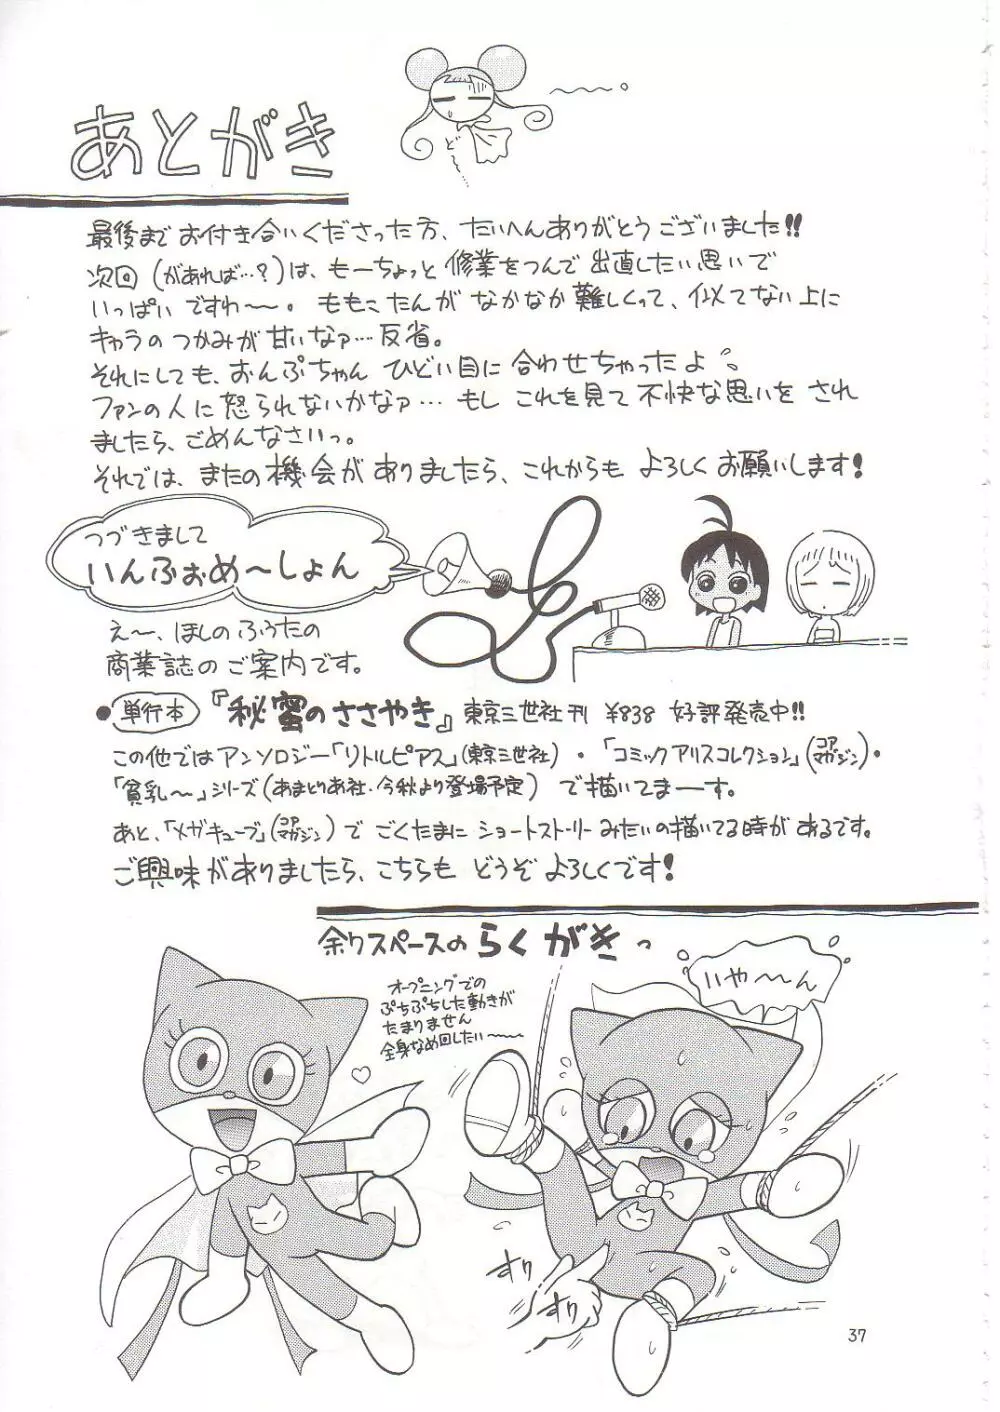 あとがき
ど
最後までお付き合いくださった方、たいへんありがとうございました!!
次回(があれば…?)は、もーちょっと修業をつんで出直したい思いで
いっぱいですわ〜〜。ももこたんがなかなか難しくって、似てない上に
キャラのつかみが甘いなァ…反省。
それにしても、おんぷちゃんひどい目に合わせちゃったよ
ファンの人に怒られないかなァ…もしこれを見て不快な思いをされ
ましたら、ごめんなさいっ。
それでは、またの機会がありましたら、これからもよろしくお願いします!
つづきまして
いんふぉめ〜しょん
え〜、ほしのふうたの
商業誌のご案内です。
●単行本『秘蜜のささやき』東京三世社刊 ¥838 好評発売中!!
この他ではアンソロジー「リトルピアス」(東京三世社)・「コミックアリスコレクション」(コアマガジン)・
「貧乳〜」シリーズ(あまとりあ社・今秋より登場予定)で描いてまーす。
あと、「メガキューブ」(コアマガジン)でごくたまにショートストーリーみたいの描いてる時があるです。
ご興味がありましたら、こちらもどうぞよろしくです!
余りスペースのらくがきっ
オープニングでの
ぷちぷちした動きが
たまりません
全身なめ回したい〜〜
いや〜〜ん
すり
すり
37